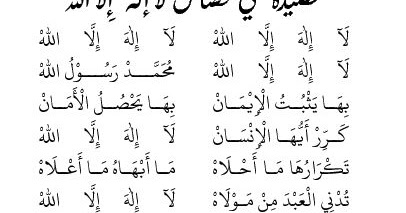 قصيدة في فضائل لا إله إلا الله
لَآ إِلٰهَ إِلَّا اللهْ لَآ إِلٰهَ إِلَّا اللهْ
لَآ إِلٰهَ إِلَّا اللهْ مُحَمَّـــدْ رَسُـــوْلُ اللهْ
بِهَـا يَثْبُـتُ الْإِيْمَـانْ بِهَـا يَحْصُـلُ الْأَمَـانْ
كَـرِّرْ أَيُّهَـا الْإِنْسَـانْ لَآ إِلٰهَ إِلَّا اللهْ
تَكْرَارُهَا مَـا أَحْلَاهْ مَـا أَبْهَـاهُ مَـا أَعْلَاهْ
تُدْنِي الْعَبْدَ مِنْ مَوْلَاهْ لَآ إِلٰهَ إِلَّا اللهْ